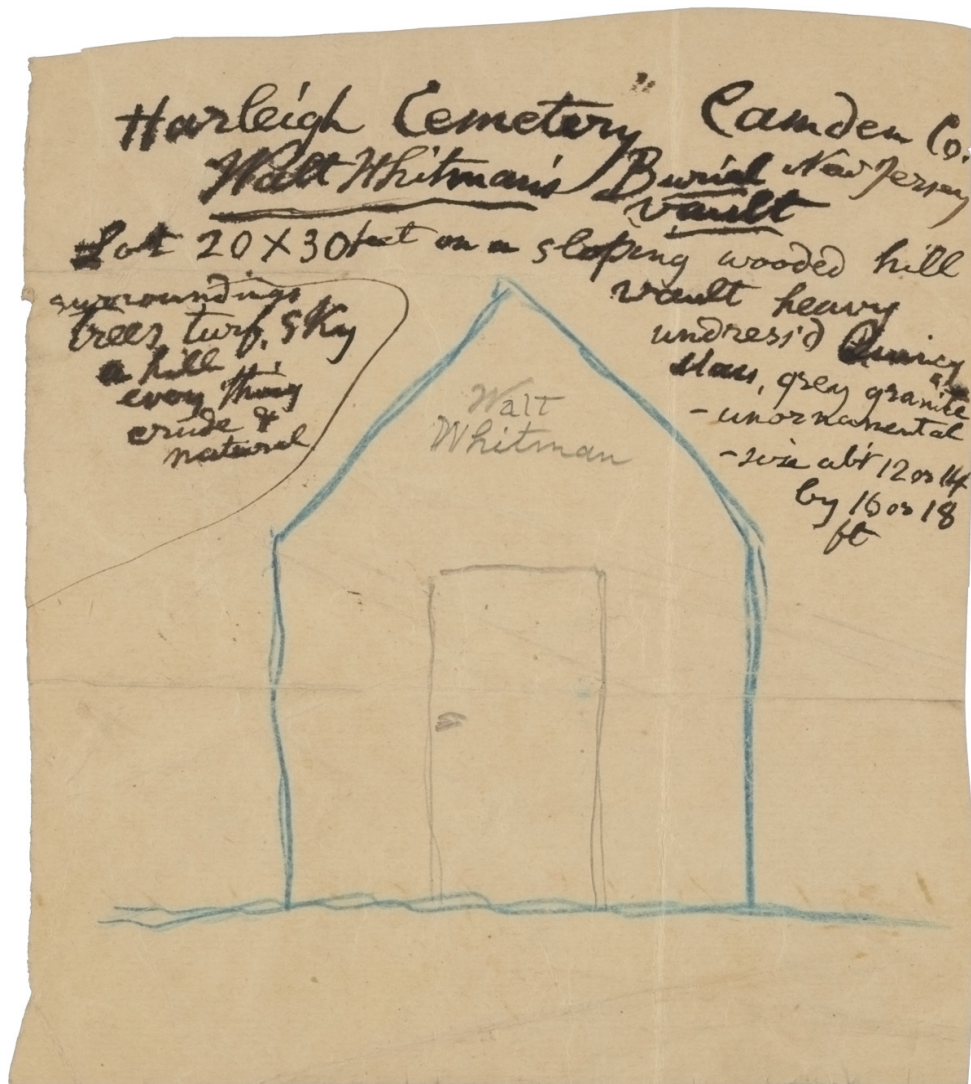 Harleigh Cemetery Camden Co.
New Jersey
Walt Whitman's Burial
vault
Lot 20 X 30 feet on a sloping wooded hill
surroundings
trees, turf, sky
a hill
every thing
crude &
natural
vault heavy
undress'd Quincy
Mass, grey granite
- unornamental
- size abt 12 or 14
by 16 or 18
ft
Walt
Whitman